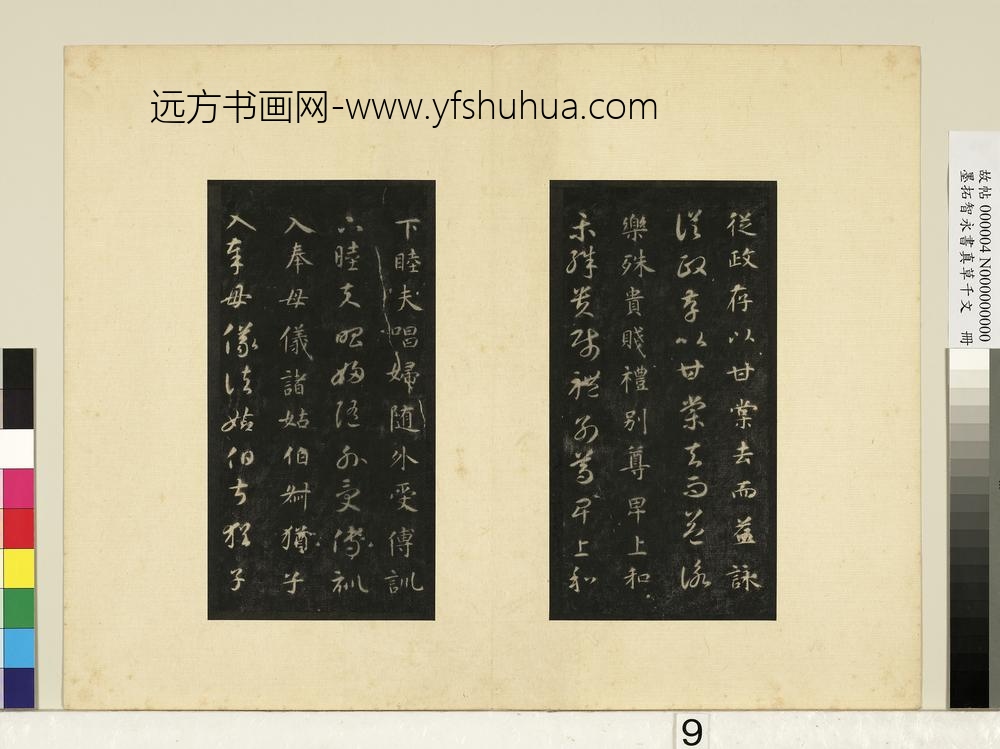 远方书画网-www.yfshuhua.com
從政存以甘棠去而益詠
從政存以甘棠去而益詠
樂殊貴賤禮别尊卑上和
樂殊貴賤禮别尊卑上和
下睦夫唱婦随外受傅訓
下睦夫唱婦随外受傅訓
入奉母儀諸姑伯叔猶子
入奉母儀諸姑伯叔猶子
故帖 000004 N000000000
墨拓智永書真草千文 冊
9